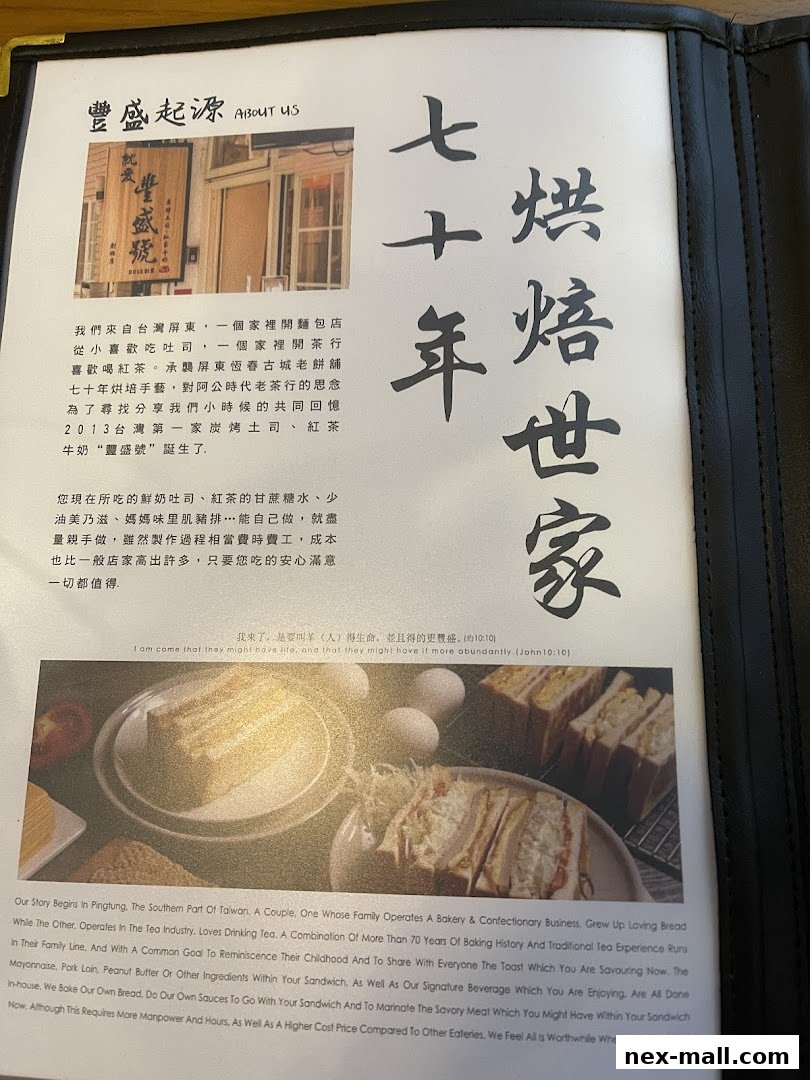 豐盛起源 ABOUT US
七十年
烘焙世家
就愛
豐盛號
創始店
2013創業
我們來自台灣屏東，一個家裡開麵包店
從小喜歡吃吐司，一個家裡開茶行
喜歡喝紅茶。承襲屏東恆春古城老餅舖
七十年烘培手藝，對阿公時代老茶行的思念
為了尋找分享我們小時候的共同回憶
2013台灣第一家炭烤土司、紅茶
牛奶“豐盛號”誕生了.
您現在所吃的鮮奶吐司、紅茶的甘蔗糖水、少
油美乃滋、媽媽味里肌豬排…能自己做，就盡
量親手做，雖然製作過程相當費時費工，成本
也比一般店家高出許多，只要您吃的安心滿意
一切都值得.
我來了，是要叫羊（人）得生命，並且得的更豐盛。(約10:10)
I am come that they might have life, and that they might have it more abundantly.(John10:10)
Our Story Begins In Pingtung, The Southern Part Of Taiwan. A Couple, One Whose Family Operates A Bakery & Confectionary Business, Grew Up Loving Bread
While The Other, Operates In The Tea Industry, Loves Drinking Tea. A Combination Of More Than 70 Years Of Baking History And Traditional Tea Experience Runs
In Their Family Line, And With A Common Goal To Reminiscence Their Childhood And To Share With Everyone The Toast Which You Are Savouring Now. The
Mayonnaise, Pork Loin, Peanut Butter Or Other Ingredients Within Your Sandwich, As Well As Our Signature Beverage Which You Are Enjoying, Are All Done
In-house. We Bake Our Own Bread, Do Our Own Sauces To Go With Your Sandwich And To Marinate The Savory Meat Which You Might Have Within Your Sandwich
Now. Although This Requires More Manpower And Hours, As Well As A Higher Cost Price Compared To Other Eateries, We Feel All Is Worthwhile
nex-mall.com